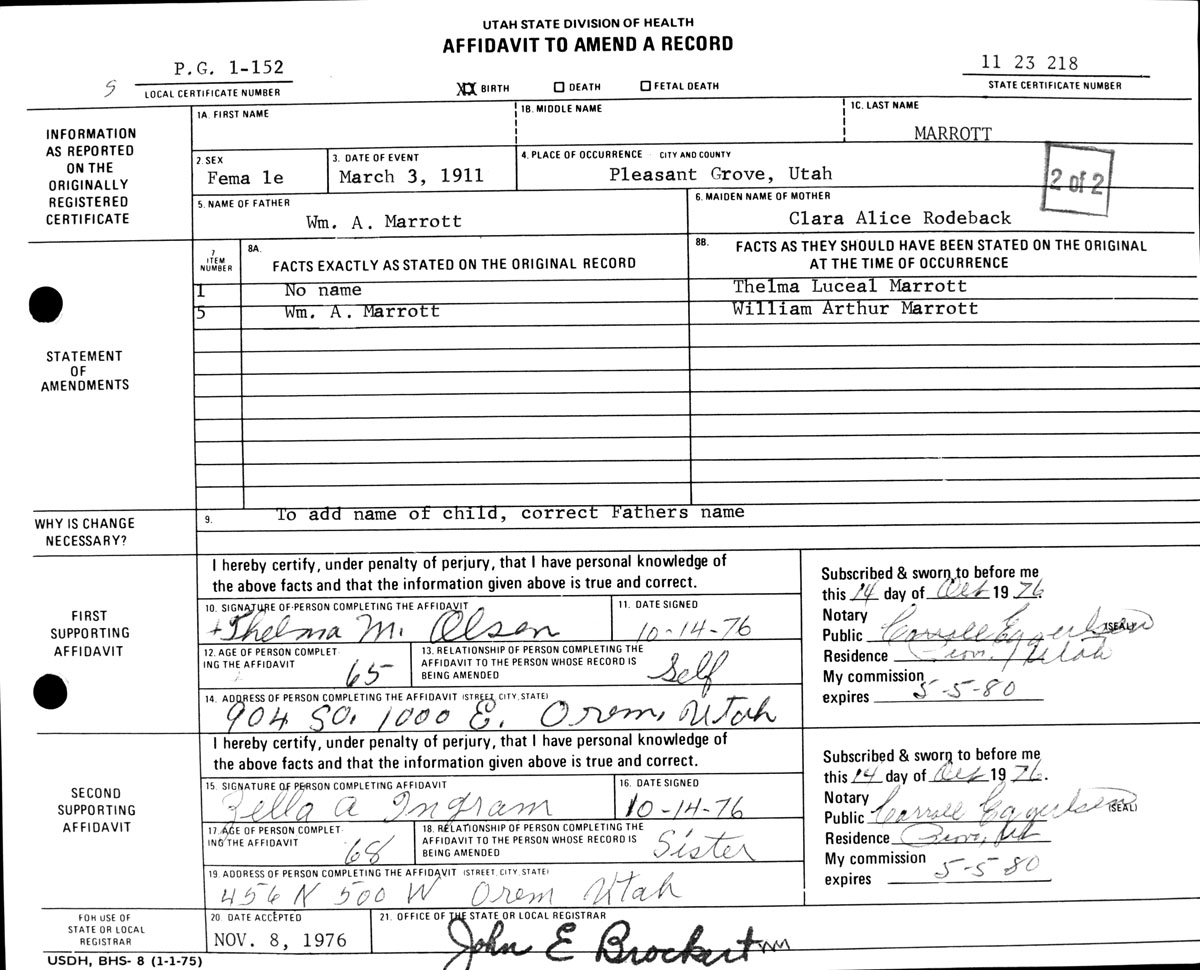 UTAH STATE DIVISION OF HEALTH
AFFIDAVIT TO AMEND A RECORD
S
P.G. 1-152
LOCAL CERTIFICATE NUMBER
XX BIRTH DEATH FETAL DEATH
11 23 218
STATE CERTIFICATE NUMBER
INFORMATION
AS REPORTED
ON THE
ORIGINALLY
REGISTERED
CERTIFICATE
1A. FIRST NAME
1B. MIDDLE NAME
1C. LAST NAME
MARROTT
2. SEX
Fema le
3. DATE OF EVENT
March 3, 1911
4. PLACE OF OCCURRENCE - CITY AND COUNTY
Pleasant Grove, Utah
2 of 2
5. NAME OF FATHER
Wm. A. Marrott
6. MAIDEN NAME OF MOTHER
Clara Alice Rodeback
STATEMENT
OF
AMENDMENTS
7
ITEM
NUMBER
8A.
FACTS EXACTLY AS STATED ON THE ORIGINAL RECORD
8B. FACTS AS THEY SHOULD HAVE BEEN STATED ON THE ORIGINAL
AT THE TIME OF OCCURRENCE
1 No name Thelma Luceal Marrott
5 Wm. A. Marrott William Arthur Marrott
WHY IS CHANGE
NECESSARY?
9. To add name of child, correct Fathers name
FIRST
SUPPORTING
AFFIDAVIT
I hereby certify, under penalty of perjury, that I have personal knowledge of
the above facts and that the information given above is true and correct.
10. SIGNATURE OF PERSON COMPLETING THE AFFIDAVIT
Thelma M. Olsen
11. DATE SIGNED
10-14-76
12. AGE OF PERSON COMPLET-
ING THE AFFIDAVIT
65
13. RELATIONSHIP OF PERSON COMPLETING THE
AFFIDAVIT TO THE PERSON WHOSE RECORD IS
BEING AMENDED
Self
14. ADDRESS OF PERSON COMPLETING THE AFFIDAVIT (STREET, CITY, STATE)
904 So. 1000 E. Orem, Utah
Subscribed & sworn to before me
this 14 day of Oct 19 76
Notary
Public Carroll (SEAL)
Residence Utah
My commission
expires 5-5-80
SECOND
SUPPORTING
AFFIDAVIT
I hereby certify, under penalty of perjury, that I have personal knowledge of
the above facts and that the information given above is true and correct.
15. SIGNATURE OF PERSON COMPLETING AFFIDAVIT
Zella A Ingram
16. DATE SIGNED
10-14-76
17. AGE OF PERSON COMPLET-
ING THE AFFIDAVIT
68
18. RELATIONSHIP OF PERSON COMPLETING THE
AFFIDAVIT TO THE PERSON WHOSE RECORD IS
BEING AMENDED
Sister
19. ADDRESS OF PERSON COMPLETING THE AFFIDAVIT (STREET, CITY, STATE)
456 N 500 W Orem Utah
Subscribed & sworn to before me
this 14 day of Oct 19 76.
Notary
Public Carroll (SEAL)
Residence Ut
My commission
expires 5-5-80
FOR USE OF
STATE OR LOCAL
REGISTRAR
20. DATE ACCEPTED
NOV. 8, 1976
21. OFFICE OF THE STATE OR LOCAL REGISTRAR
John E Brockert
USDH, BHS- 8 (1-1-75)